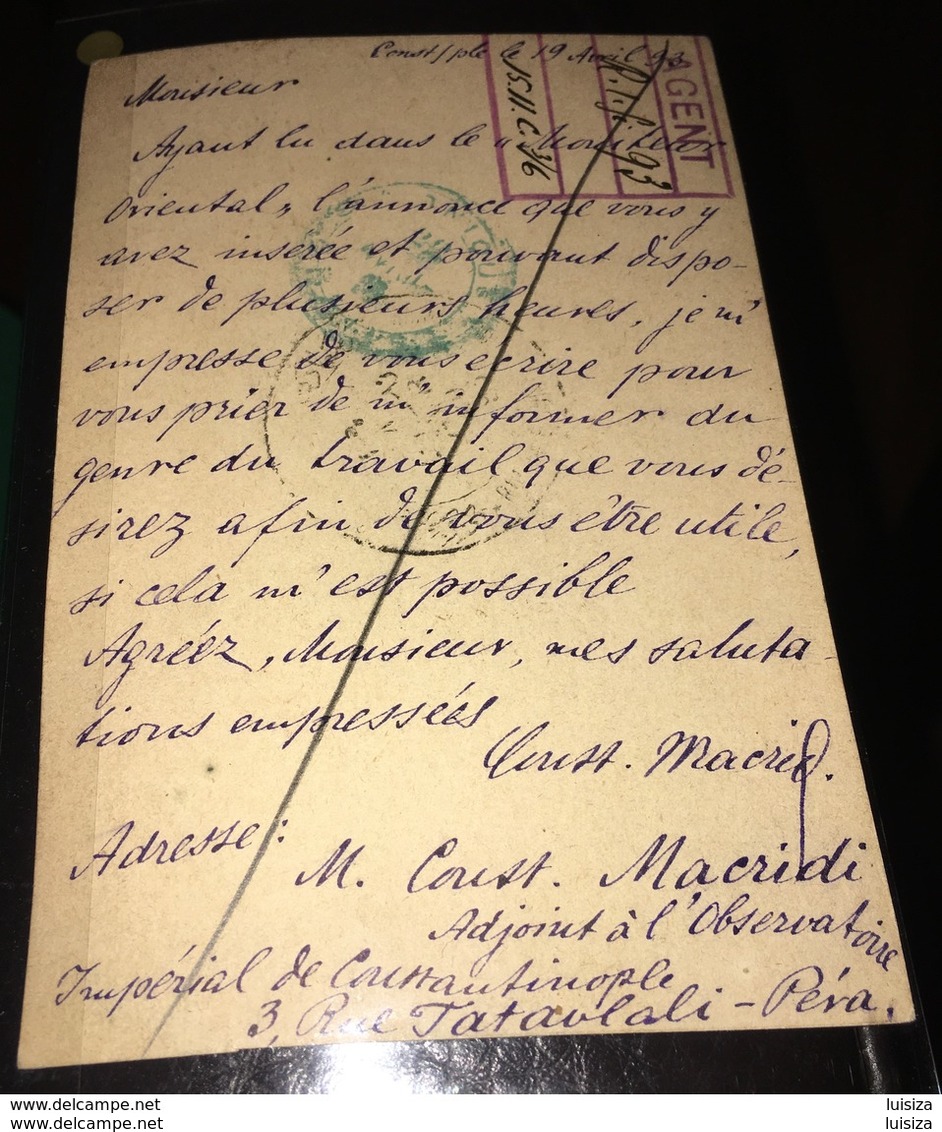 Const/ple le 19 Avril 93
AGENT
Monsieur
Ayant lu dans le „Moniteur
Oriental„ l'annonce que vous y
avez inserée et pouvant dispo-
ser de plusieurs heures, je m'
empresse de vous ecrire pour
vous prier de m'informer du
genre du travail que vous dé-
sirez afin de vous être utile,
si cela m'est possible
Agréez, Monsieur, mes saluta-
tions empressées
Const. Macridi.
Adresse:
M. Const. Macridi
Adjoint à l'Observatoire
Impérial de Constantinople
3, Rue Tatavlali - Péra.
luisiza
luisiza